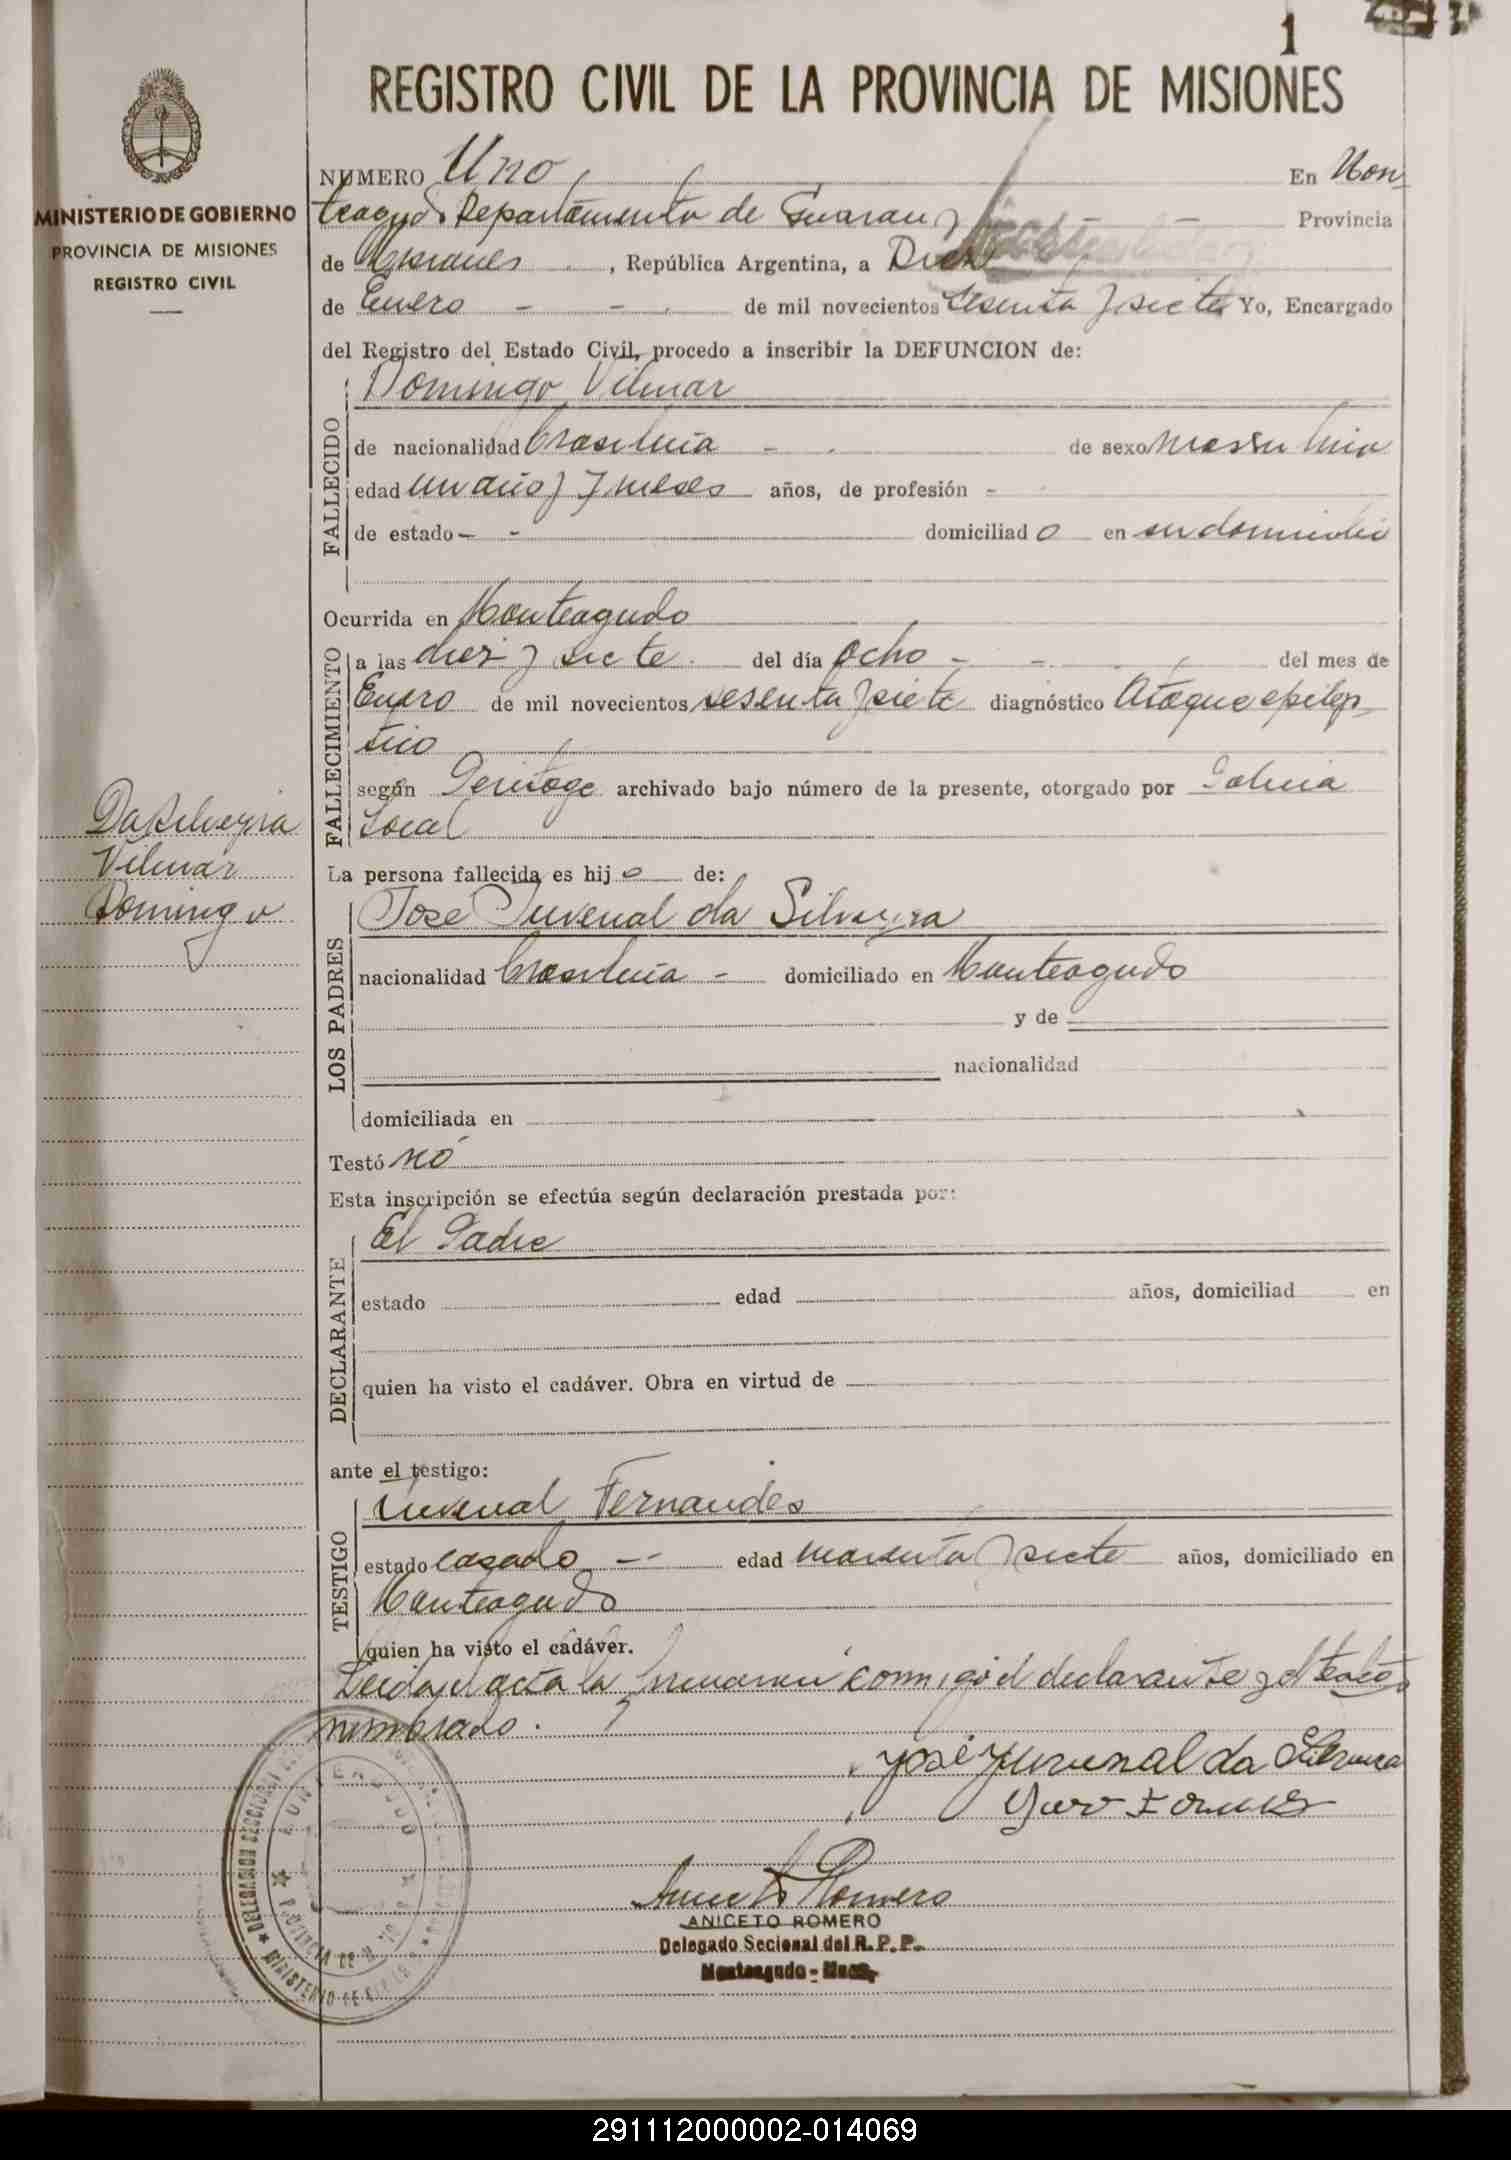 1
REGISTRO CIVIL DE LA PROVINCIA DE MISIONES
MINISTERIO DE GOBIERNO
PROVINCIA DE MISIONES
REGISTRO CIVIL
NUMERO Uno En Mon-
teagudo Departamento de Guarany Provincia
de Misiones, República Argentina, a Diez
de Enero - - de mil novecientos sesenta y siete Yo, Encargado
del Registro del Estado Civil, procedo a inscribir la DEFUNCION de:
FALLECIDO
Domingo Vilmar
de nacionalidad brasileña - de sexo masculino
edad un año y 7 meses años, de profesión -
de estado - - domiciliado en su domicilio
FALLECIMIENTO
Ocurrida en Monteagudo
a las diez y siete del día ocho - - del mes de
Enero de mil novecientos sesenta y siete diagnóstico Ataque epilep-
tico
según Peritage archivado bajo número de la presente, otorgado por Policia
Local
Da Silveyra
Vilmar
Domingo
LOS PADRES
La persona fallecida es hijo de:
Jose Juvenal da Silveyra
nacionalidad brasileña - domiciliado en Monteagudo
y de
nacionalidad
domiciliada en
Testó nó
Esta inscripción se efectúa según declaración prestada por:
DECLARANTE
El Padre
estado edad años, domiciliad en
quien ha visto el cadáver. Obra en virtud de
ante el testigo:
TESTIGO
Juvenal Fernandes
estado casado -- edad cuarenta y siete años, domiciliado en
Monteagudo
quien ha visto el cadáver.
Leida el acta la firmaron conmigo el declarante y el testigo
nombrado.
José Juvenal da Silveira
Aniceto Romero
ANICETO ROMERO
Delegado Seccional del R. P. P.
Monteagudo - Mnes.
DELEGACION SECCIONAL
MONTEAGUDO
PROVINCIA DE MISIONES
MINISTERIO DE GOBIERNO
291112000002-014069